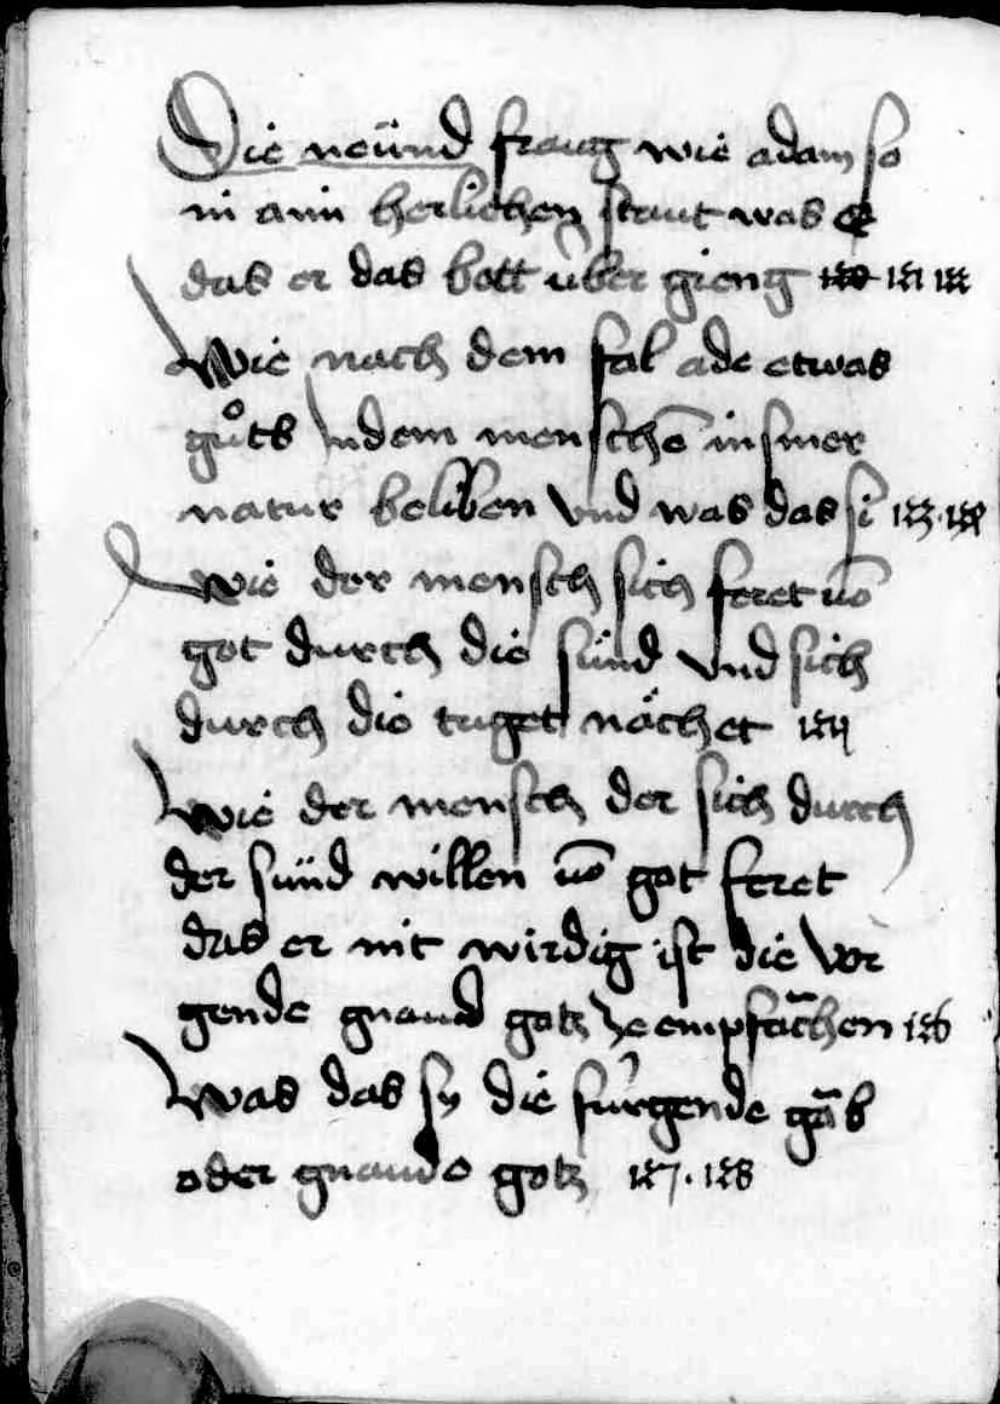 Die neünd fraug wie adam so
in aim herlichen staut was
das er das bott über gieng
Wie nach dem fal ade etwas
gůts Indem menschē in siner
natur beliben vnd was das si
wie der mensch sich feret uō
got durch die sünd vnd sich
durch die tuget nächet
wie der mensch der sich durch
der sünd willen uō got feret
das er nit wirdig ist die vor
gende gnaud gotz ze empfachen 156
Was das sy die fürgende gāb
oder gnaude gotz 157. 158